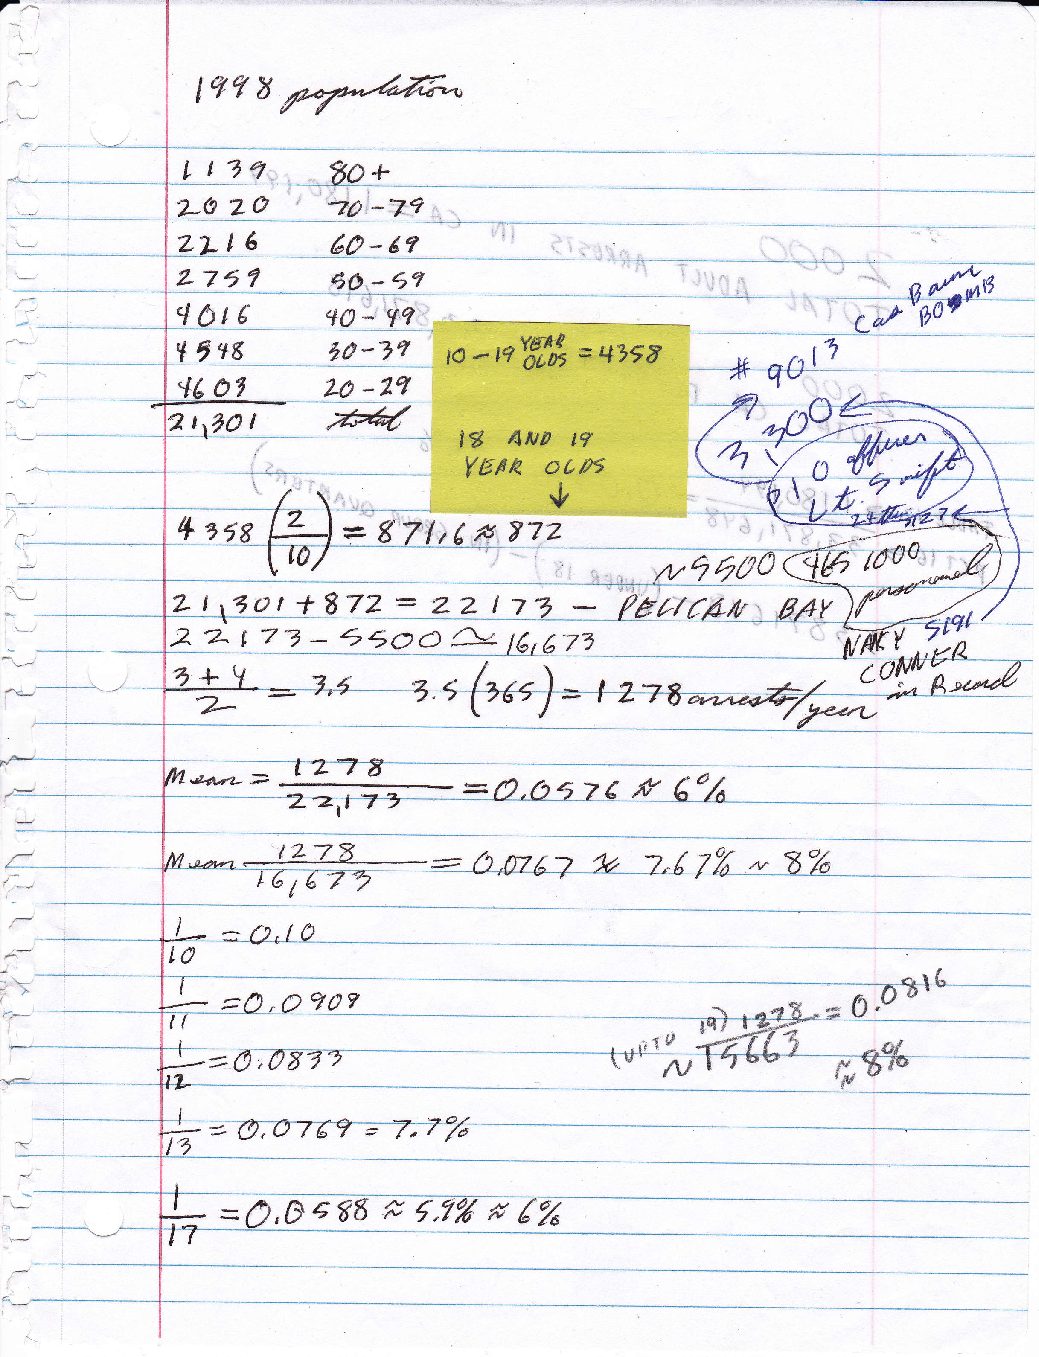 1998 population
1139 80+
2020 70-79
2216 60-69
2759 50-59
4016 40-49
4548 30-39
4603 20-29
21,301 total
10-19 YEAR OLDS = 4358
18 AND 19
YEAR OLDS
↓
# 9013
3,300
210 officer
Lt. Swift
4358 (2/10) = 871.6 ≈ 872
~5500 465 1000
personnel
21,301 + 872 = 22173 - PELICAN BAY
22173 - 5500 ≃ 16,673
5191
CONNER
in Record
3+4/2 = 3.5 3.5(365) = 1278 arrests/year
Mean = 1278/22,173 = 0.0576 ≈ 6%
Mean 1278/16,673 = 0.0767 ≈ 7.67% ~ 8%
1/10 = 0.10
1/11 = 0.0909
(UP TO 19) 1278/~15663 = 0.0816
≈ 8%
1/12 = 0.0833
1/13 = 0.0769 = 7.7%
1/17 = 0.0588 ≈ 5.9% ≈ 6%